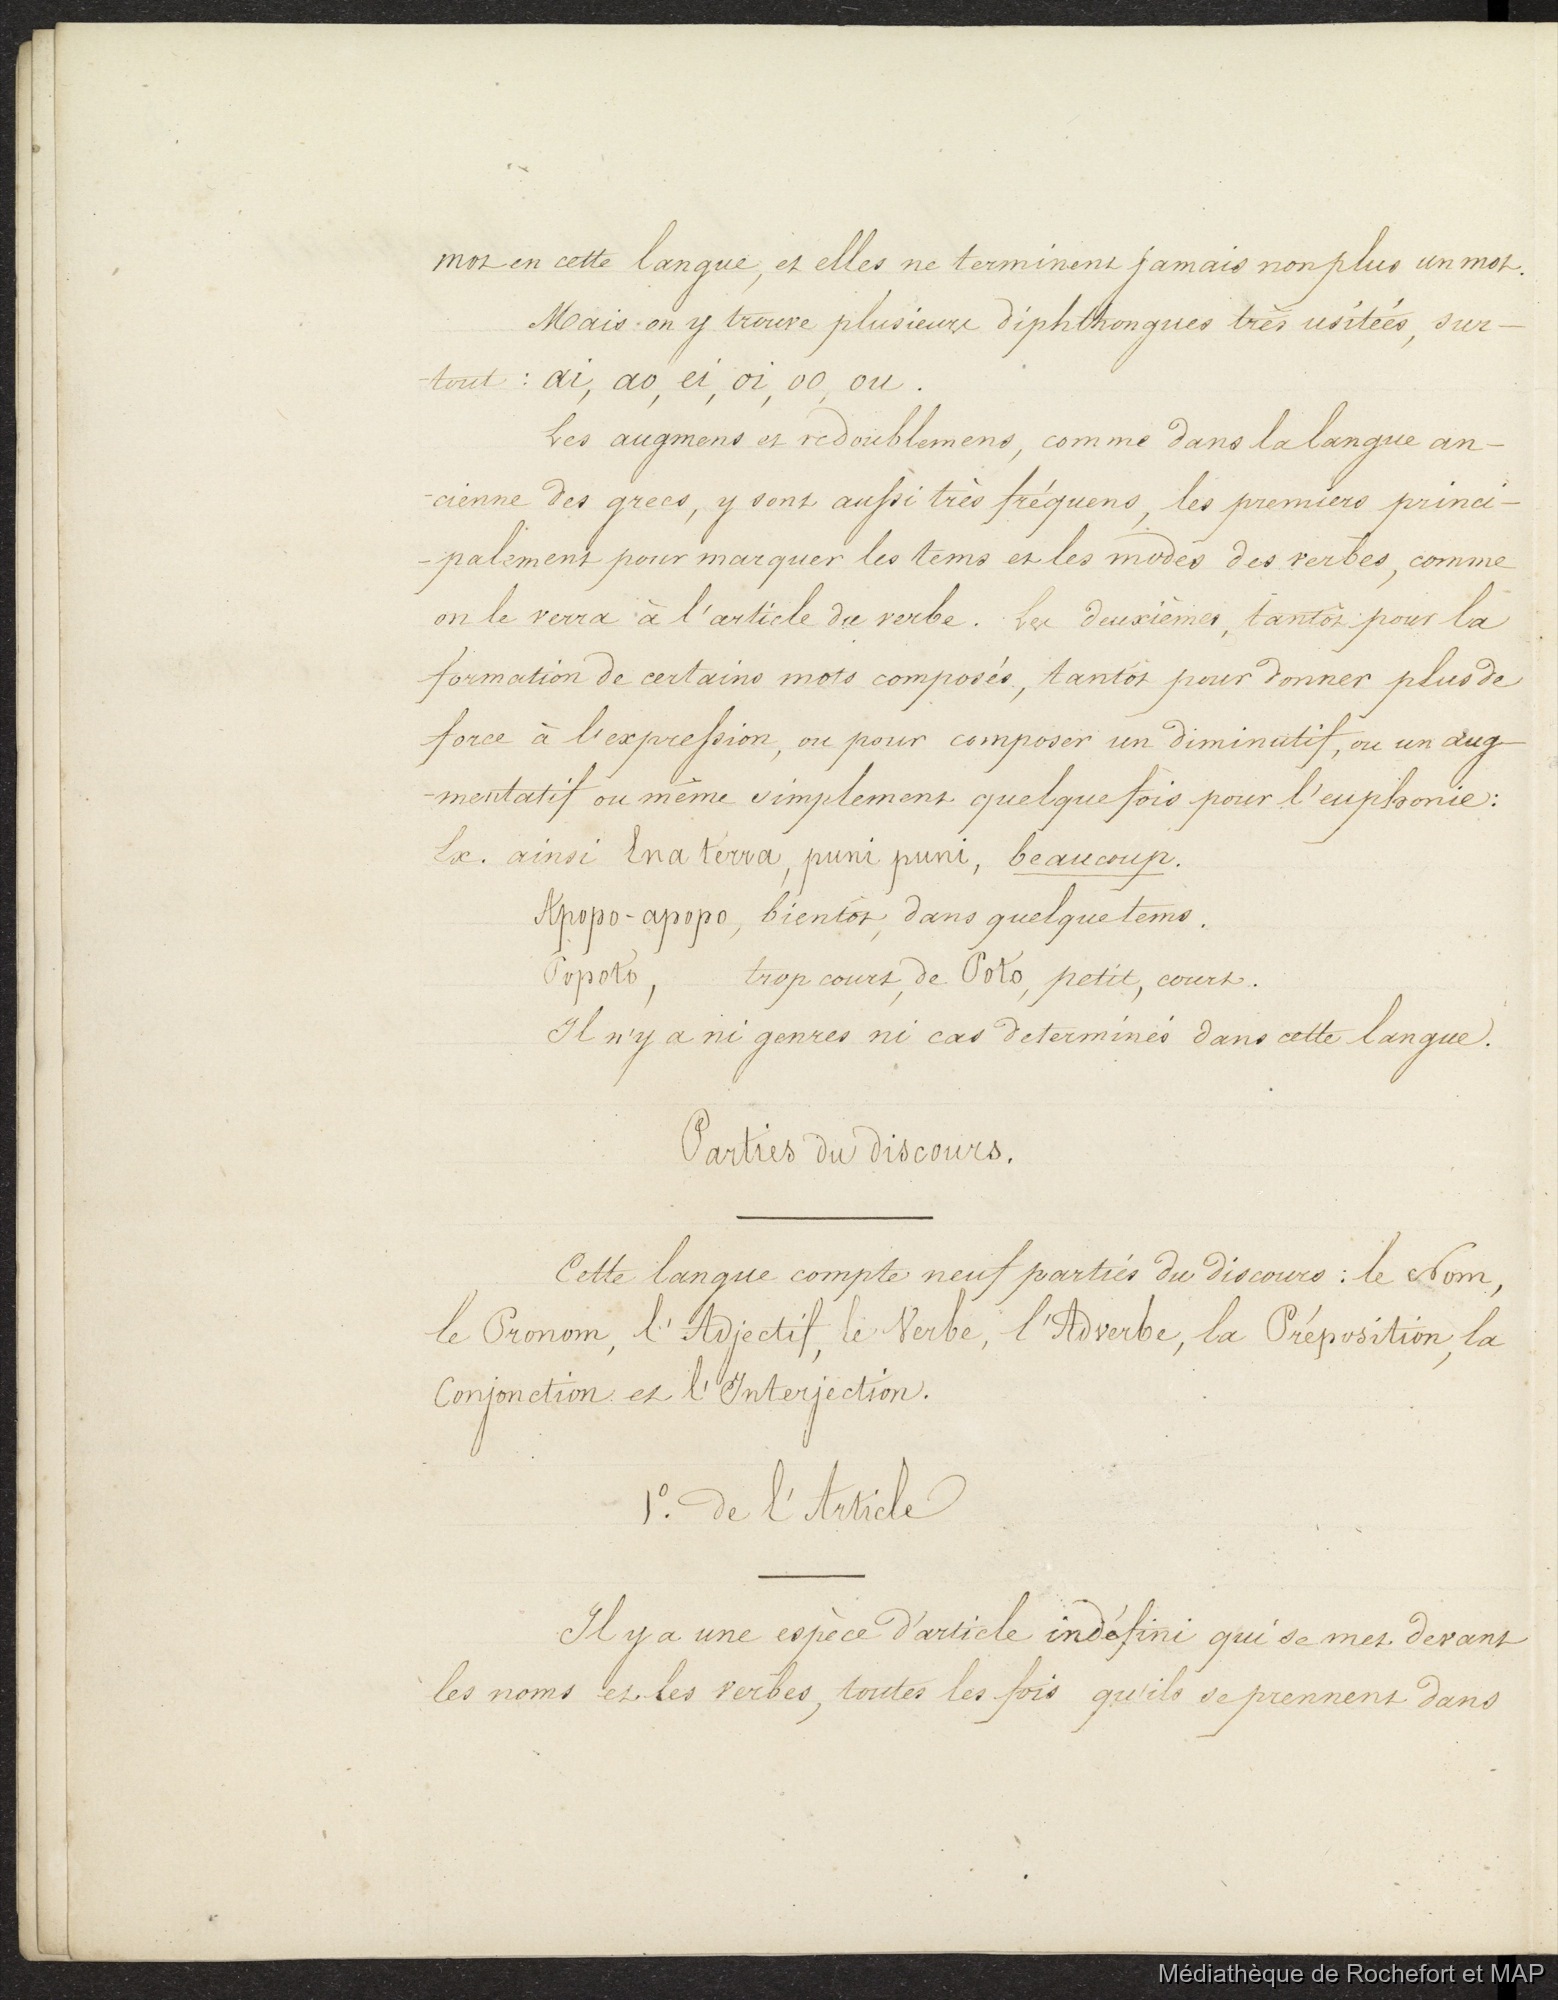 mot en cette langue, et elles ne terminent jamais non plus un mot.
Mais on y trouve plusieurs diphthongues très usitées, sur-
-tout : ai, ao, ei, oi, oo, ou.
Les augmens et redoublemens, comme dans la langue an-
-cienne des grecs, y sont aussi très fréquens, les premiers princi-
-palement pour marquer les tems et les modes des verbes, comme
on le verra à l'article du verbe. Les deuxièmes, tantôt pour la
formation de certains mots composés, tantôt pour donner plus de
force à l'expression, ou pour composer un diminutif, ou un aug-
-mentatif ou même simplement quelquefois pour l'euphonie:
Ex. ainsi Ena terra, puni puni, beaucoup.
Apopo-apopo, bientôt, dans quelque tems.
Popoto, trop court, de Poto, petit, court.
Il n'y a ni genres ni cas determinés dans cette langue.
Parties du discours.
Cette langue compte neuf parties du discours : le Nom,
le Pronom, l'Adjectif, le Verbe, l'Adverbe, la Préposition, la
Conjonction et l'Interjection.
1º. de l'Article
Il y a une espèce d'article indéfini qui se met devant
les noms et les verbes, toutes les fois qu'ils se prennent dans
Médiathèque de Rochefort et MAP